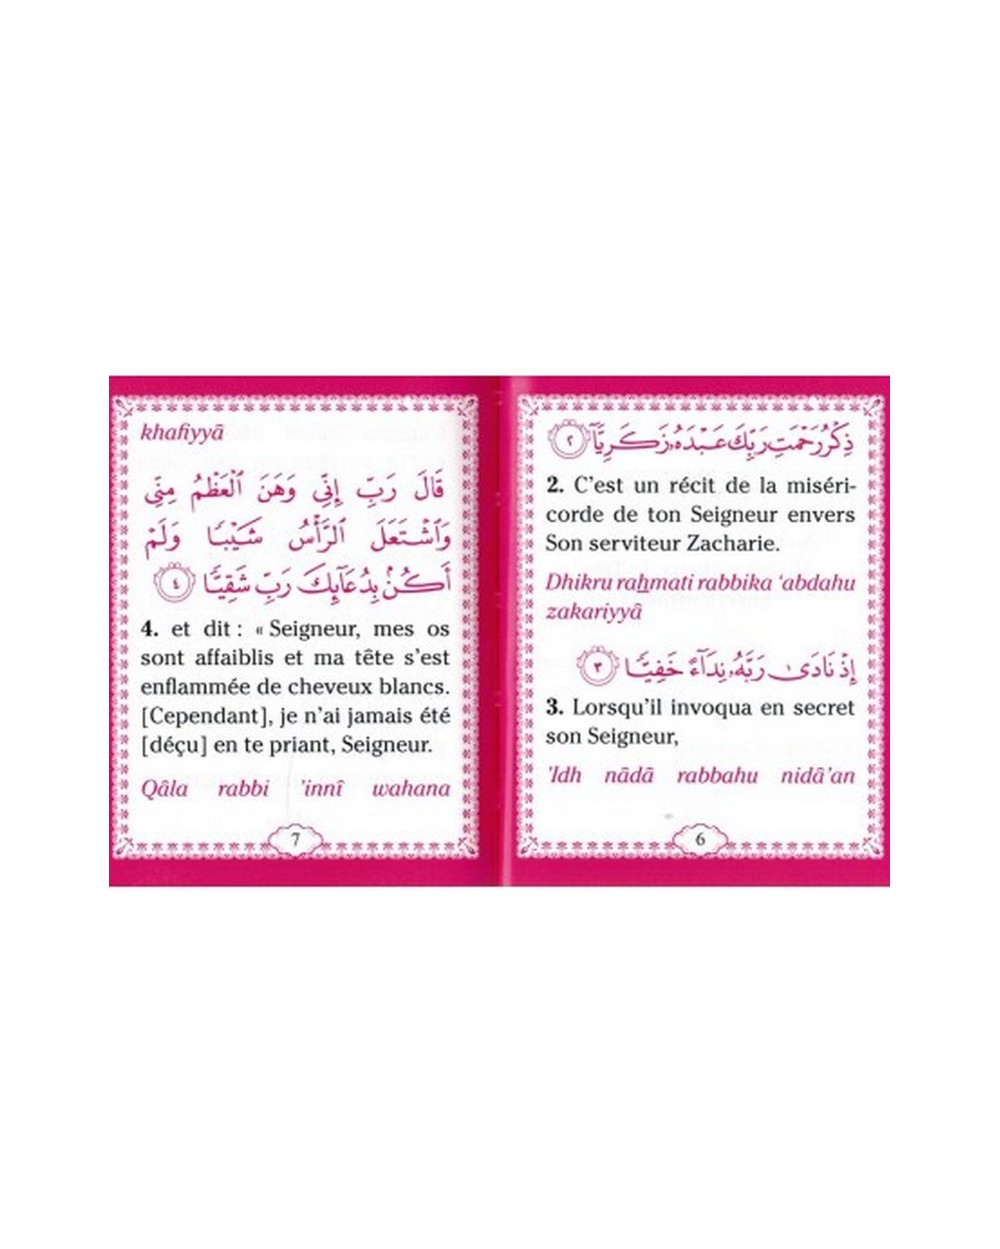 ذِكْرُ رَحْمَتِ رَبِّكَ عَبْدَهُۥ زَكَرِيَّآ ٢
2. C'est un récit de la miséri-
corde de ton Seigneur envers
Son serviteur Zacharie.
Dhikru raẖmati rabbika ‘abdahu
zakariyyâ
إِذْ نَادَىٰ رَبَّهُۥ نِدَآءً خَفِيًّا ٣
3. Lorsqu'il invoqua en secret
son Seigneur,
'Idh nādā rabbahu nidâ'an
6
khafiyyā
قَالَ رَبِّ إِنِّى وَهَنَ ٱلْعَظْمُ مِنِّى
وَٱشْتَعَلَ ٱلرَّأْسُ شَيْبًا وَلَمْ
أَكُنۢ بِدُعَآئِكَ رَبِّ شَقِيًّا ٤
4. et dit : « Seigneur, mes os
sont affaiblis et ma tête s'est
enflammée de cheveux blancs.
[Cependant], je n'ai jamais été
[déçu] en te priant, Seigneur.
Qâla rabbi 'innî wahana
7